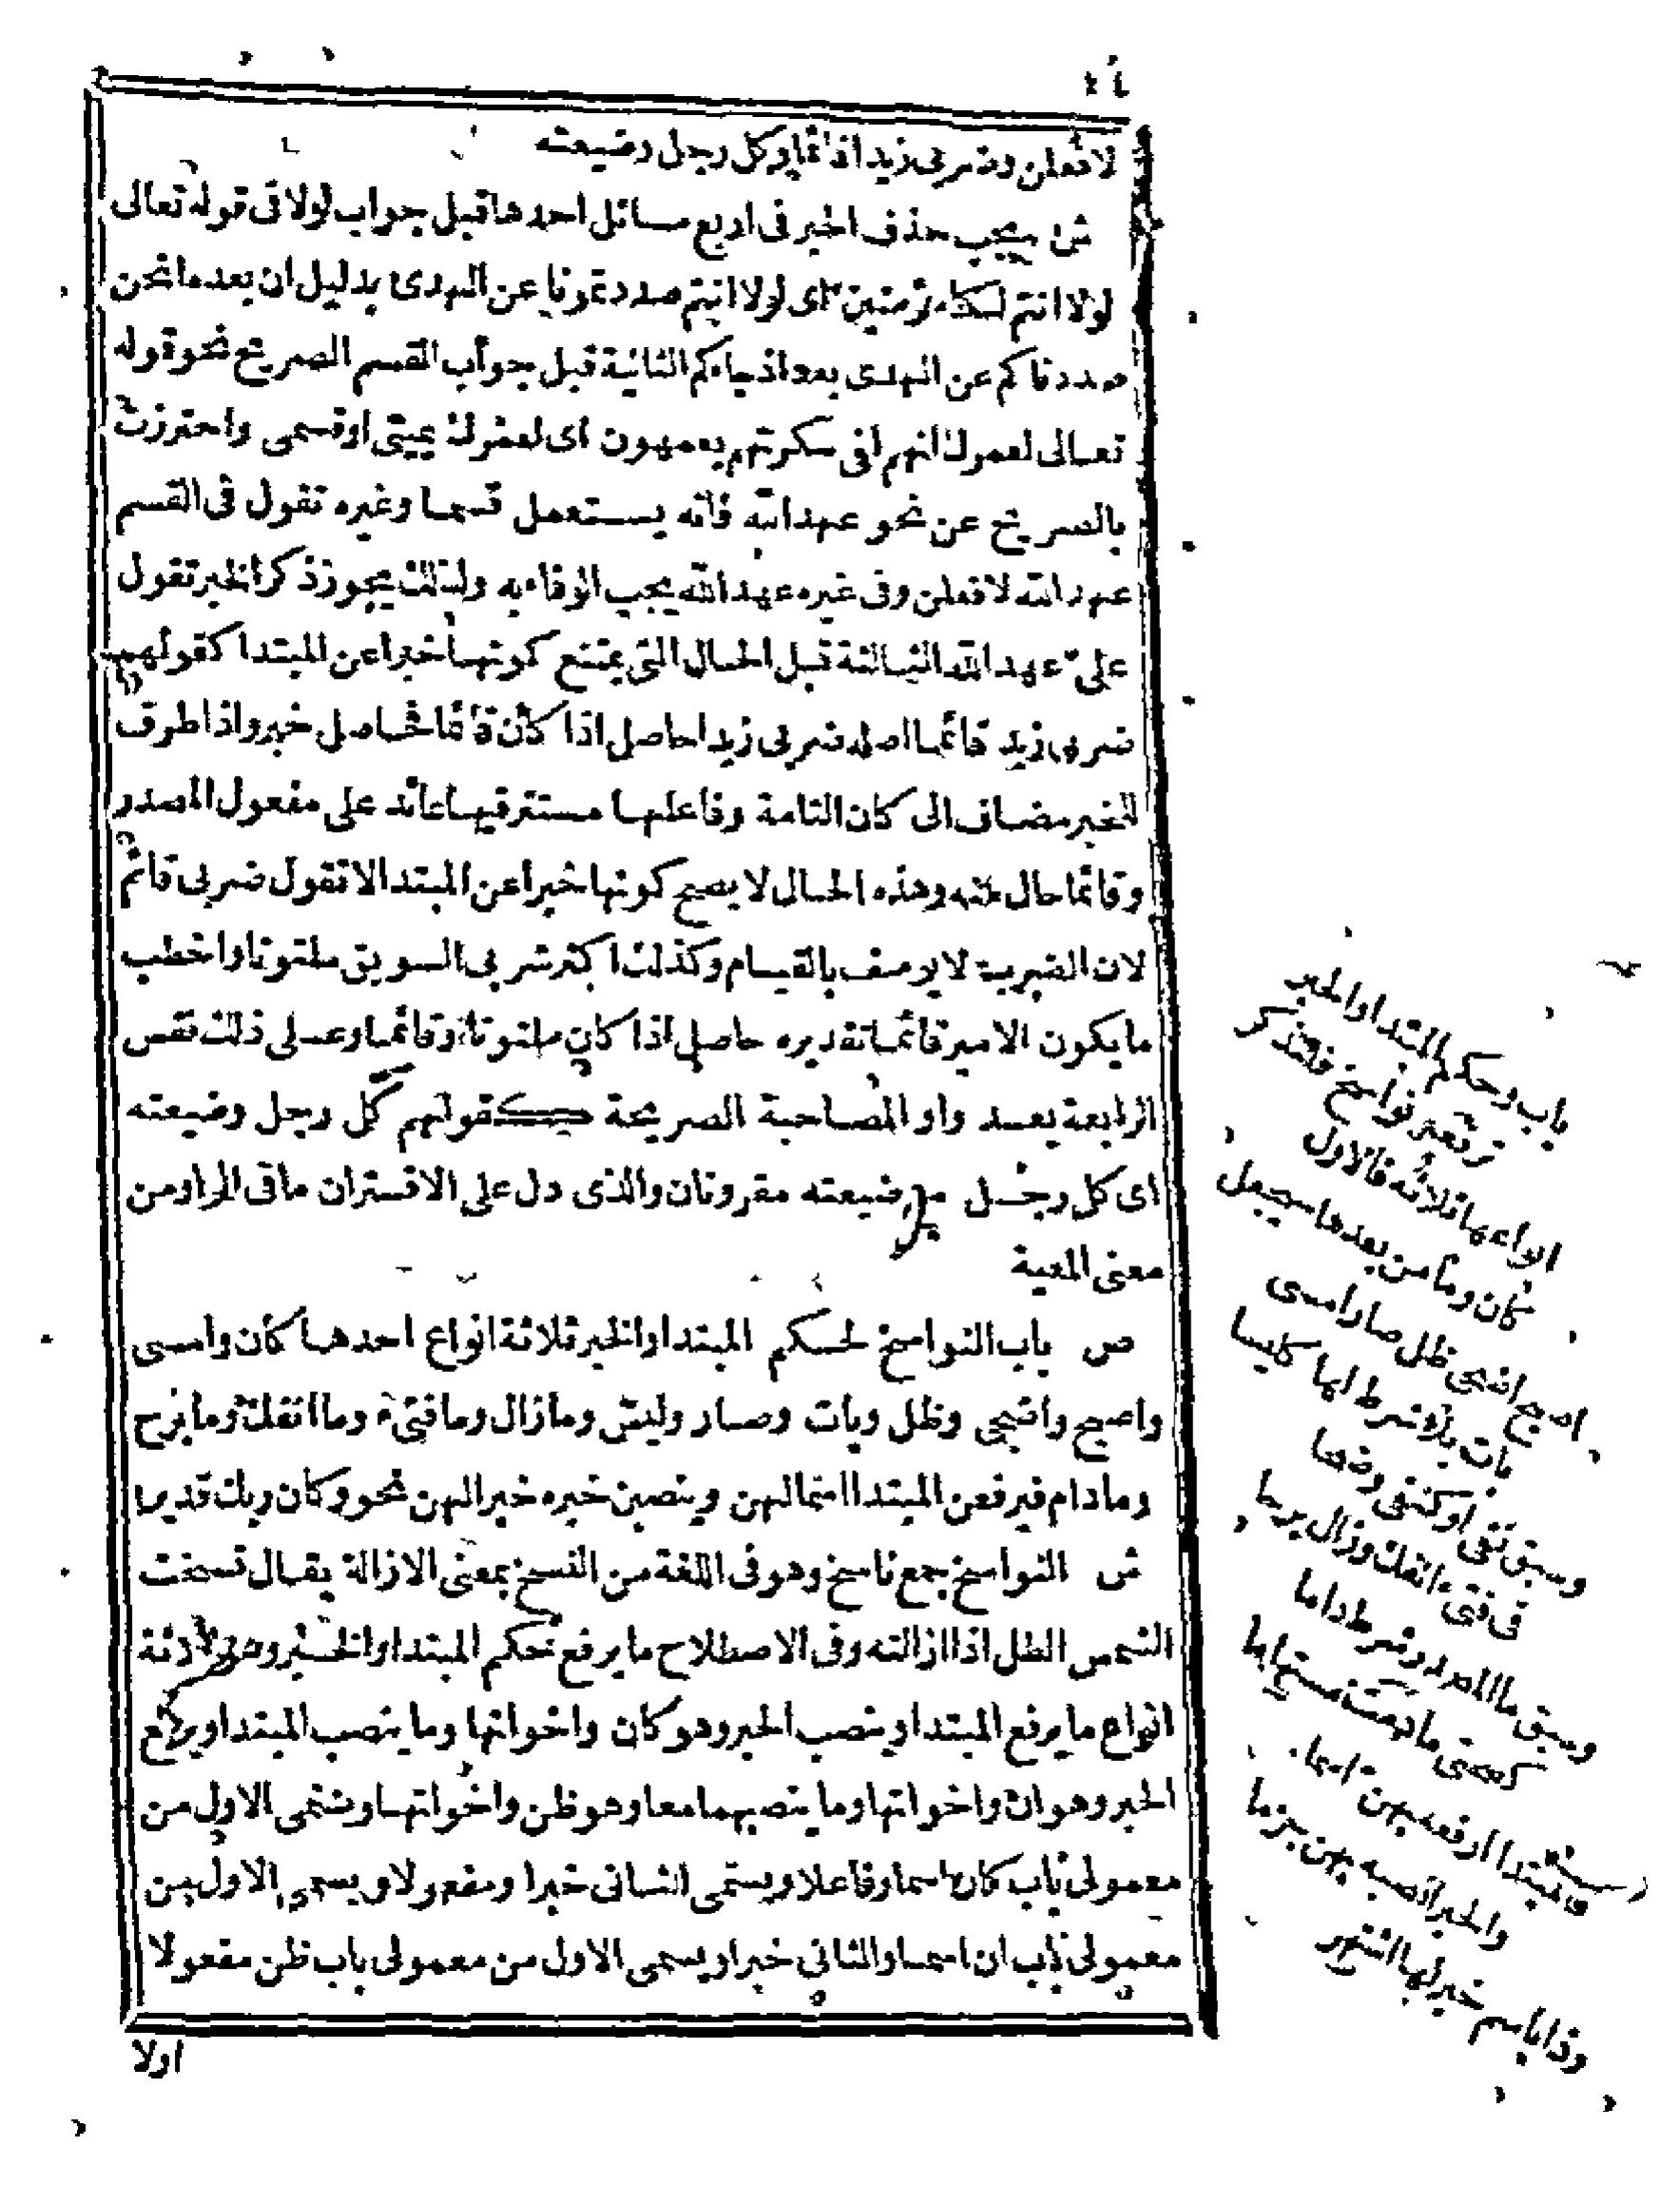 لافعلن وضربى زيدا قائما وكل رجل وضيعته
ش يجب حذف الخبر فى اربع مسائل احدها قبل جواب لولا فى قوله تعالى
لولا انتم لكنا مؤمنين اى لولا انتم صددتمونا عن الهدى بدليل ان بعده انحن
صددناكم عن الهدى بعد اذ جاءكم الثانية قبل جواب القسم الصريح نحو قوله
تعالى لعمرك انهم لفى سكرتهم يعمهون اى لعمرك يمينى او قسمى واحترزت
بالصريح عن نحو عهد الله فانه يستعمل قسما وغيره تقول فى القسم
عهد الله لافعلن وفى غيره عهد الله يجب الوفاء به ولذلك يجوز ذكر الخبر تقول
علىّ عهد الله الثالثة قبل الحال التى يمتنع كونها خبرا عن المبتدا كقولهم
ضربى زيد قائما اصله ضربى زيدا حاصل اذا كان قائما فحاصل خبر واذا ظرف
للخبر مضاف الى كان التامة وفاعلها مستتر فيها عائد على مفعول المصدر
وقائما حال منه وهذه الحال لا يصح كونها خبرا عن المبتدا لا تقول ضربى قائم
لان الضرب لا يوصف بالقيام وكذلك اكثر شربى السويق ملتوتا واخطب
ما يكون الامير قائما تقديره حاصل اذا كان ملتوتا وقائما وعلى ذلك فقس
الرابعة بعد واو المصاحبة الصريحة كقولهم كل رجل وضيعته
اى كل رجل مع ضيعته مقرونان والذى دل على الاقتران ما فى الواو من
معنى المعية
ص باب النواسخ لحكم المبتدا والخبر ثلاثة انواع احدها كان وامسى
واصبح واضحى وظل وبات وصار وليس ومازال ومافتىء وما انفك ومابرح
ومادام فيرفعن المبتدا اسما لهن وينصبن خبره خبرا لهن نحو وكان ربك قديرا
ش النواسخ جمع ناسخ وهو فى اللغة من النسخ بمعنى الازالة يقال نسخت
الشمس الظل اذا ازالته وفى الاصطلاح ما يرفع حكم المبتدا والخبر وهو ثلاثة
انواع ما يرفع المبتدا وينصب الخبر وهو كان واخواتها وما ينصب المبتدا ويرفع
الخبر وهو ان واخواتها وما ينصبهما معا وهو ظن واخواتها ويسمى الاول من
معمولى باب كان اسما وفاعلا ويسمى الثانى خبرا ومفعولا ويسمى الاول من
معمولى باب ان اسما والثانى خبرا ويسمى الاول من معمولى باب ظن مفعولا
اولا
باب وحكم المبتدا والخبر
ترفعه نواسخ فلتذكر
انواعها ثلاثه فالاول
كان وما من بعدها سيجعل
اصبح اضحى ظل صار امسى
بات بلا شرط لها كليسا
وسبق نفى او كنفى
فى فتىء انفك وزال برحا
وسبق ما المصدر شرط داما
فالمبتدا ارفعه بهن اسما
والخبر انصبه بهن جزما
وذا باسم خبر لها اشتهر